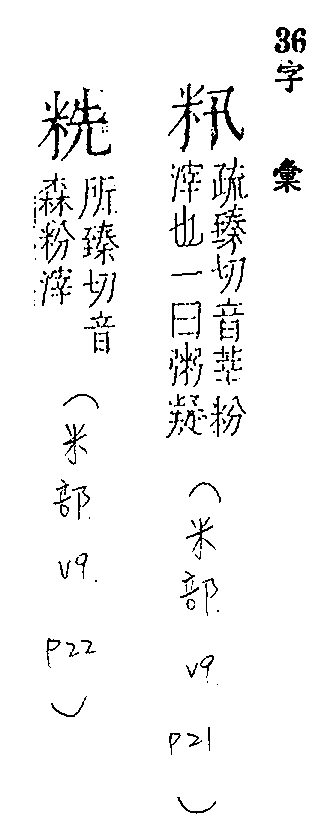 36字彙
籸
疏臻切音莘粉
滓也一曰粥凝
(米部 v9. p21)
粩
所臻切音
森粉滓
(米部 v9. p22)